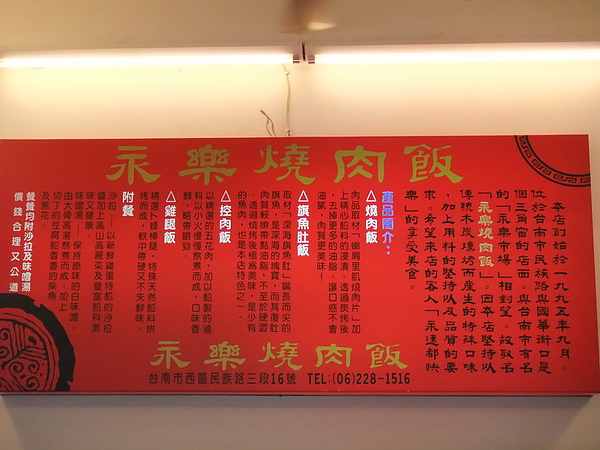 永樂燒肉飯
本店創始於一九九五年九月。
位於台南市民族路與國華街口是
個三角窗的店面。與台南市有名
的「永樂市場」相對望。故取名
「永樂燒肉飯」。因本店堅持以
傳統木炭燻烤而產生的特殊口味
,加上用料的堅持以及品質的要
求。希望來店的客人「永遠都快
樂」的享受美食。
產品簡介:
△燒肉飯
肉品取材「嫩肩里肌燒肉片」加
上精心餡料的浸漬。透過炭烤後
,去掉更多的油脂。讓口感不會
油膩,肉質更美味!
△旗魚肚飯
取材「深海旗魚肚」嘴長而尖的
旗魚,是深海的塊寶,而其復肚
肉質較帶帶點油脂,不至於硬澀
,透過燒烤後極為美味,是少有
的魚肉,也是本店特色之一。
△控肉飯
以精選的五花肉,加以船製的滷
料以小火慢慢熬煮而成,口味香
鮮,略帶嚼勁。
△雞腿飯
精選卜蜂棒腿,特殊天然餡料烘
烤而成,軟中帶硬又不失鮮味。
附餐
沙拉---以新鮮雞蛋特餡的沙拉
醬加上高山高麗菜及豐富餡料美
味又健康。
味噌湯---保持原味的白味噌。
由大骨高湯熬煮而成。加上
切丁的豆腐餡香香的柴魚
及蔥花。
餐餐均附沙拉及味噌湯
價錢合理又公道
永樂燒肉飯
台南市西區民族路三段16號 TEL:(06)228-1516